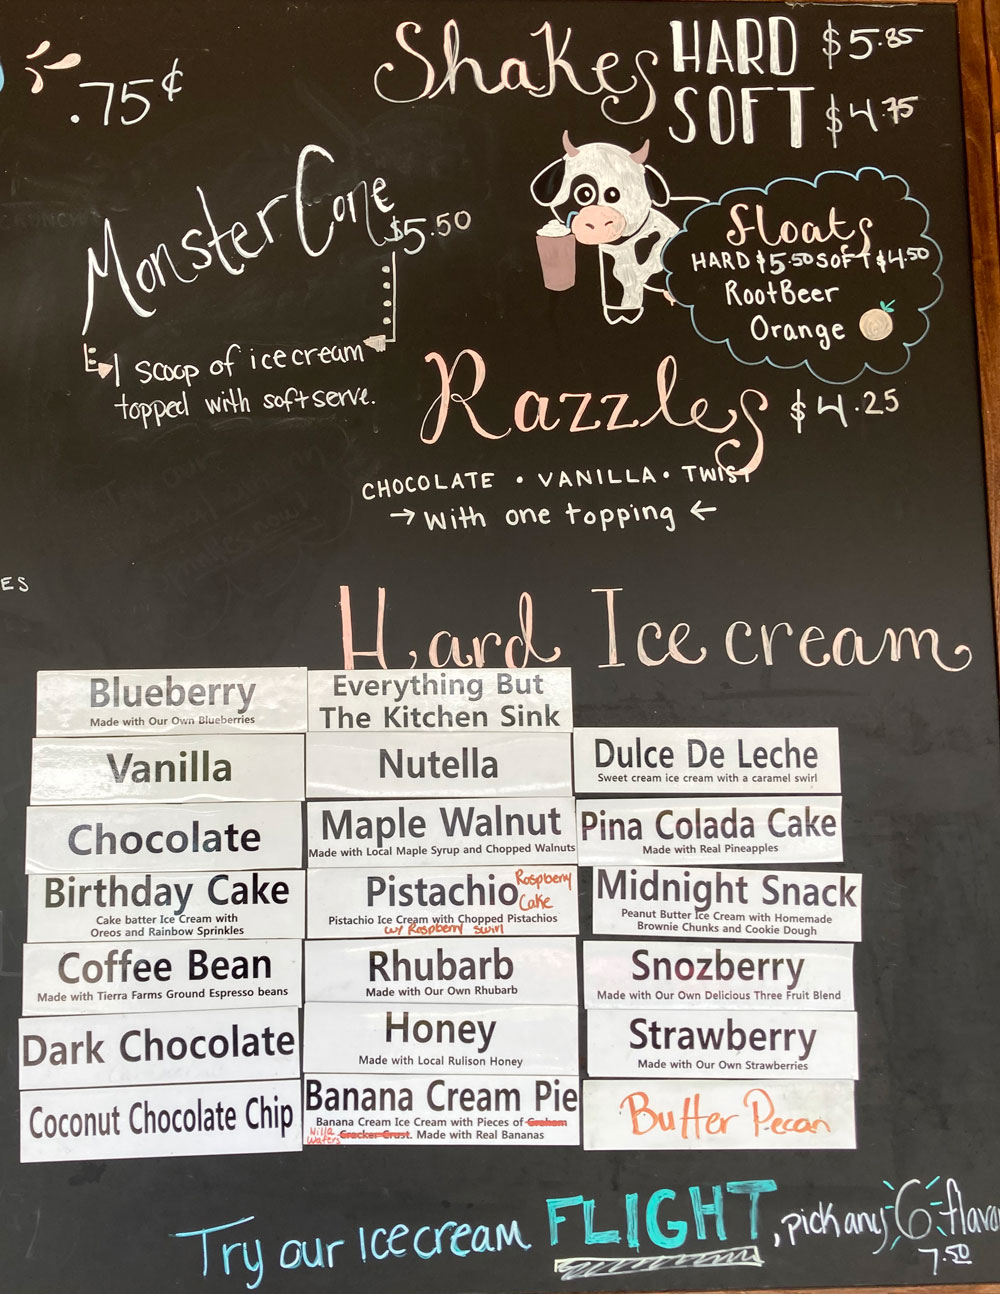 .75¢
Shakes HARD $5.85
SOFT $4.75
Monster Cone $5.50
1 scoop of ice cream
topped with soft serve.
Floats
HARD $5.50 SOFT $4.50
Root Beer
Orange
Razzles $4.25
CHOCOLATE • VANILLA • TWIST
→ with one topping ←
ES
Hard Ice cream
Blueberry
Made with Our Own Blueberries
Vanilla
Chocolate
Birthday Cake
Cake batter Ice Cream with
Oreos and Rainbow Sprinkles
Coffee Bean
Made with Tierra Farms Ground Espresso beans
Dark Chocolate
Coconut Chocolate Chip
Everything But
The Kitchen Sink
Nutella
Maple Walnut
Made with Local Maple Syrup and Chopped Walnuts
Pistachio Raspberry
Cake
Pistachio Ice Cream with Chopped Pistachios
w/ Raspberry swirl
Rhubarb
Made with Our Own Rhubarb
Honey
Made with Local Rulison Honey
Banana Cream Pie
Banana Cream Ice Cream with Pieces of Graham
Nilla Wafers Cracker Crust. Made with Real Bananas
Dulce De Leche
Sweet cream ice cream with a caramel swirl
Pina Colada Cake
Made with Real Pineapples
Midnight Snack
Peanut Butter Ice Cream with Homemade
Brownie Chunks and Cookie Dough
Snozberry
Made with Our Own Delicious Three Fruit Blend
Strawberry
Made with Our Own Strawberries
Butter Pecan
Try our Ice cream FLIGHT, pick any 6 flavo
7.50